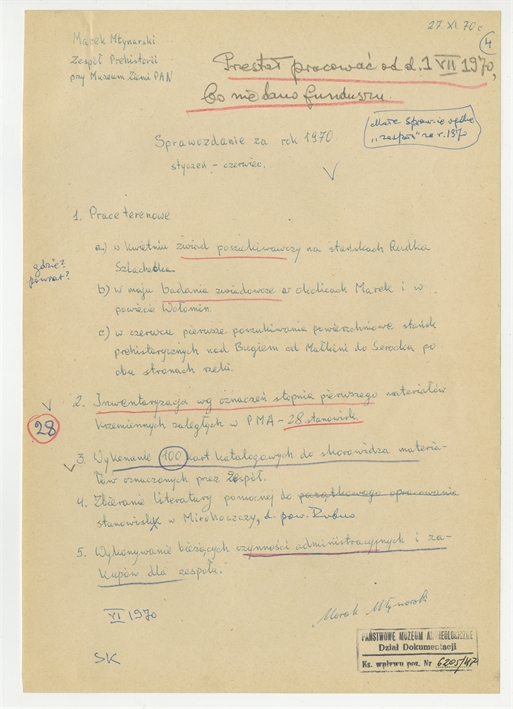 27. XI. 70 r.
4
Marek Młynarski
Zespół Prehistorii
przy Muzeum Ziemi PAN
Przestał pracować od d. 1 VII 1970,
bo nie dano funduszu.
Sprawozdanie za rok 1970
styczeń - czerwiec.
"zespołu" za r. 1970
1. Prace terenowe
a) w kwietniu zwiad poszukiwawczy na stanowiskach Rudka
Szlachecka
gdzie?
powiat?
b) w maju badania zwiadowcze w okolicach Marek i w
powiecie Wołomin.
c) w czerwcu pierwsze poszukiwania powierzchniowe stanowisk
prehistorycznych nad Bugiem od Małkini do Serocka po
obu stronach rzeki.
2. Inwentaryzacja wg oznaczeń stopnia pierwszego materiałów
krzemiennych zaległych w PMA - 28 stanowisk.
28
3. Wykonanie 100 kart katalogowych do skorowidza materia-
łów oznaczonych przez Zespół.
4. Zbieranie literatury pomocnej do początkowego opracowania
stanowisk w Mirohoszczy, d. pow. Dubno
5. Wykonywanie bieżących czynności administracyjnych i za-
kupów dla zespołu.
VI 1970
Marek Młynarski
SK
PAŃSTWOWE MUZEUM ARCHEOLOGICZNE
Dział Dokumentacji
Ks. wpływu poz. Nr 6205/47